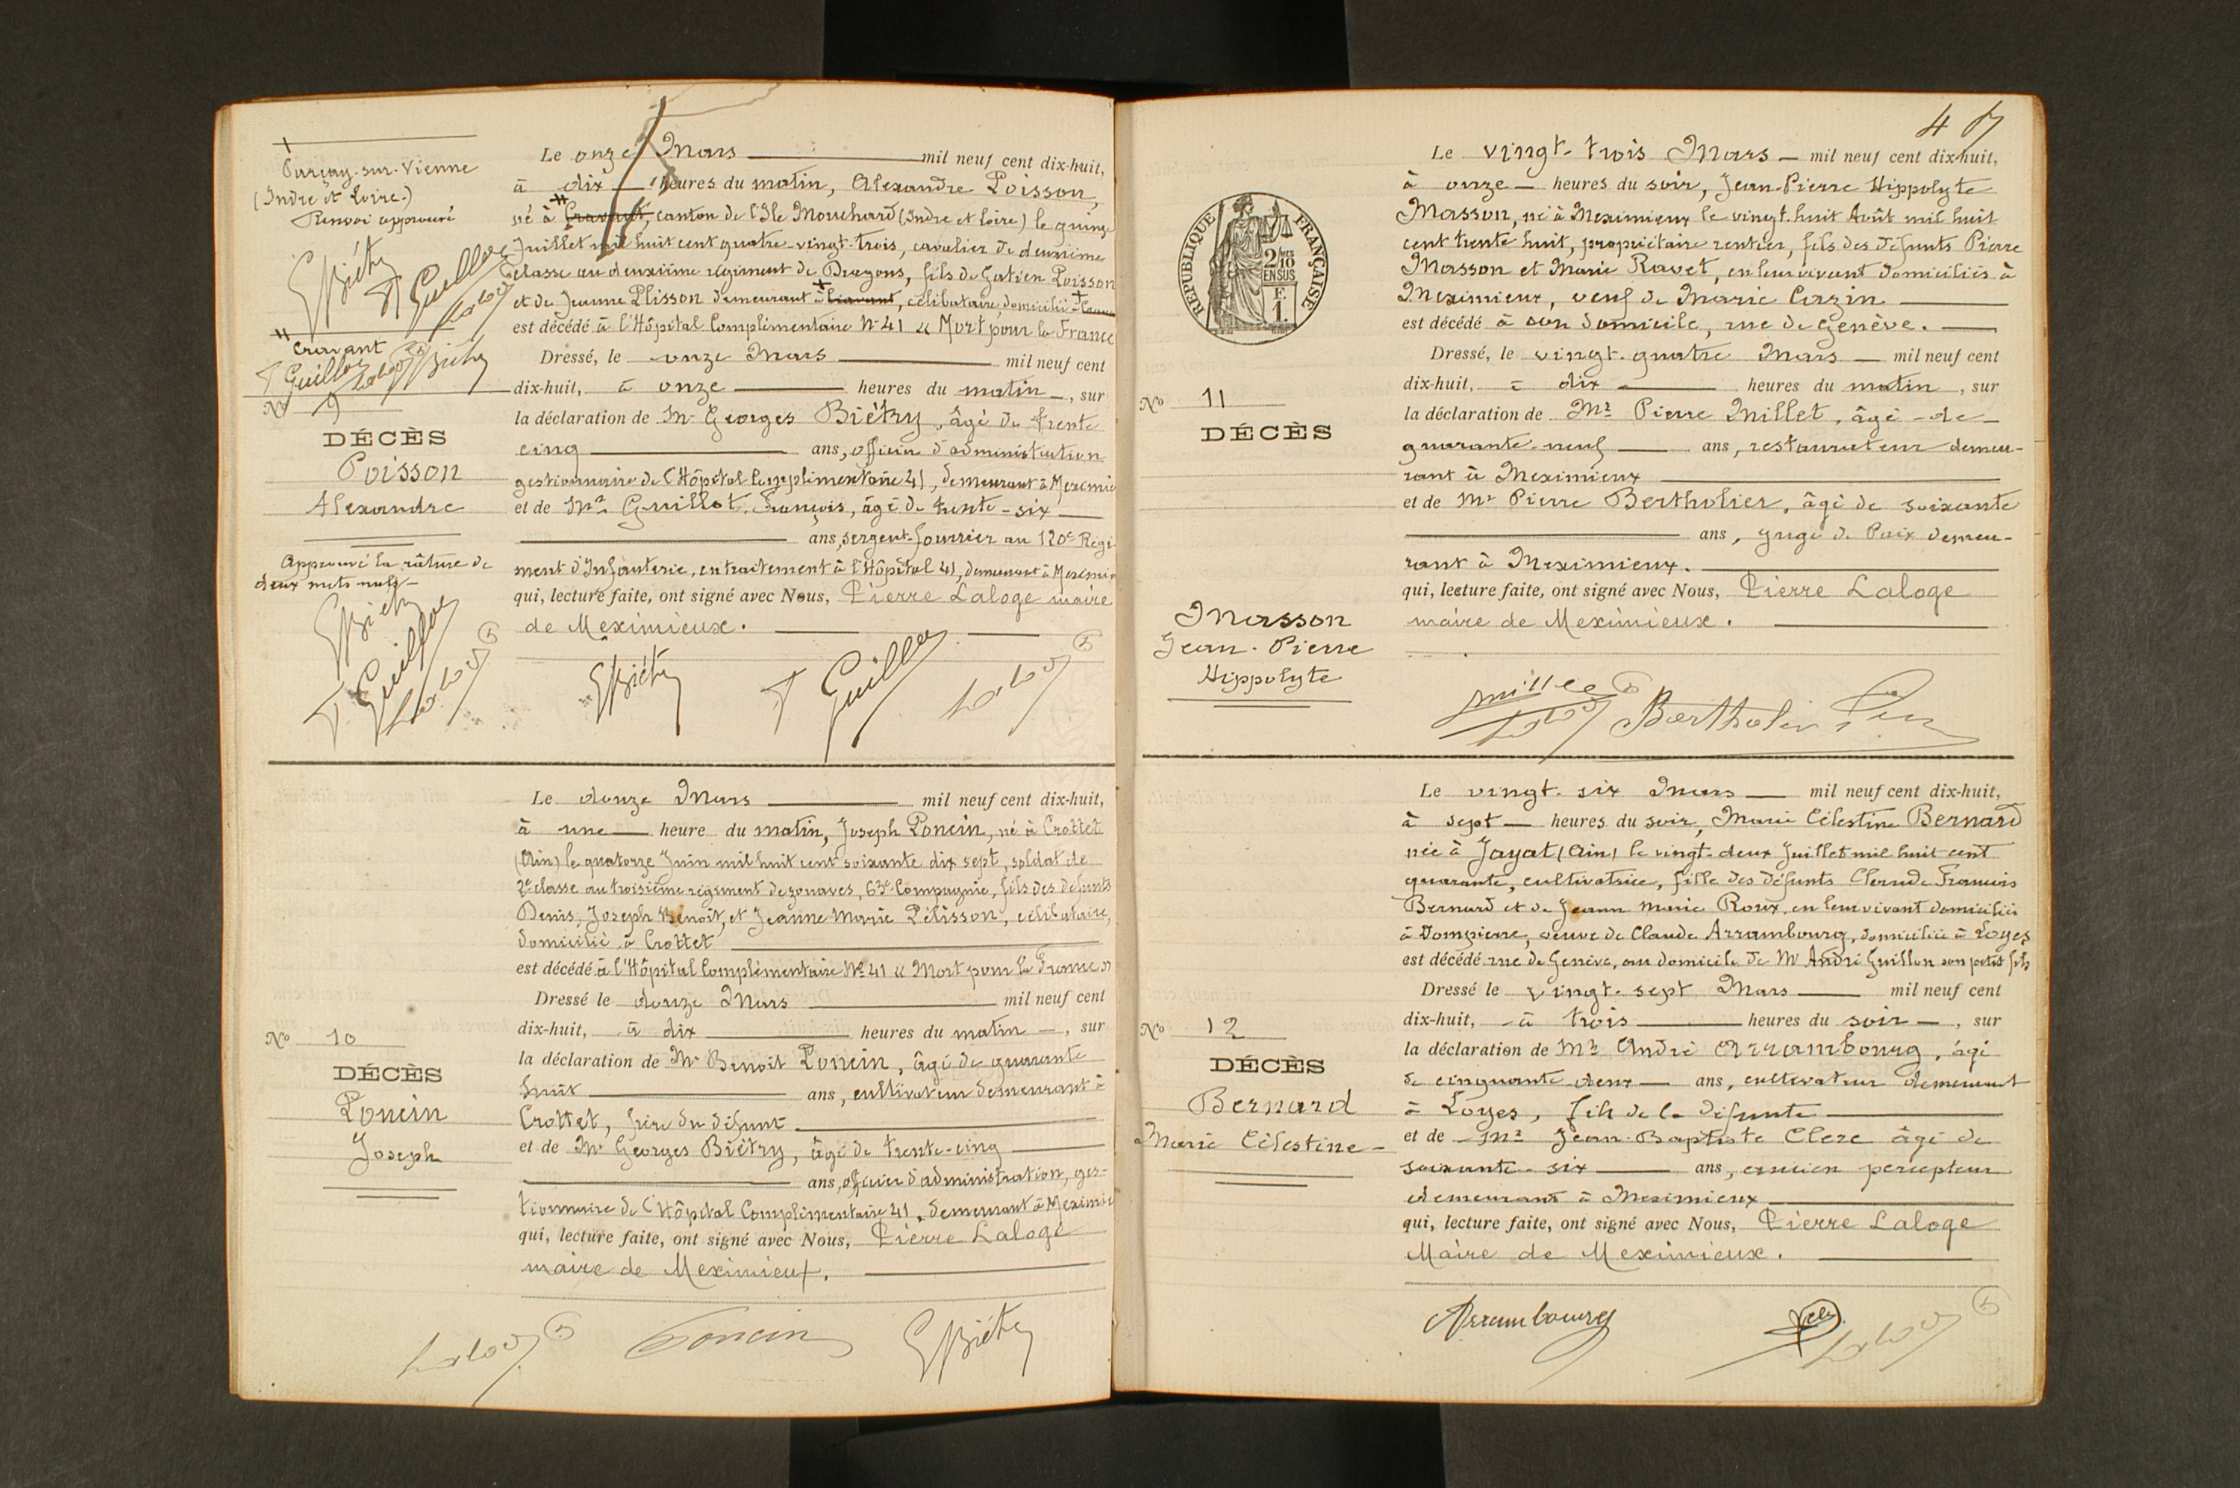 Parçay-sur-Vienne
(Indre et Loire.)
Renvoi approuvé
GBiétry
F Guillot
Laloge
Cravant
F Guillot Laloge GBiétry
No 9
DÉCÈS
Poisson
Alexandre
Approuvé la râture de
deux mots nuls
GBiétry
F. Guillot
Laloge
Le onze Mars mil neuf cent dix-huit,
à dix heures du matin, Alexandre Poisson,
né à Cravant, canton de l'Ile Mouchard (Indre et Loire) le quinze
Juillet mil huit cent quatre-vingt-trois, cavalier de deuxième
classe au deuxième régiment de Dragons, fils de Gatien Poisson
et de Jeanne Plisson demeurant à Cravant, célibataire, domicilié à
est décédé à l'Hôpital Complémentaire No 41 « Mort pour la France
Dressé, le onze Mars mil neuf cent
dix-huit, à onze heures du matin, sur
la déclaration de Mr Georges Biétry, âgé de trente
cinq ans, officier d'administration
gestionnaire de l'Hôpital Complémentaire 41, demeurant à Meximie
et de Mr Guillot, François, âgé de trente-six
ans, sergent-fourrier au 120e Régi
ment d'Infanterie, en traitement à l'Hôpital 41, demeurant à Meximie
qui, lecture faite, ont signé avec Nous, Pierre Laloge maire
de Meximieux.
GBiétry F Guillot Laloge
No 10
DÉCÈS
Poncin
Joseph
Le douze Mars mil neuf cent dix-huit,
à une heure du matin, Joseph Poncin, né à Crottet
(Ain) le quatorze Juin mil huit cent soixante dix sept, soldat de
2e classe au troisième régiment de zouaves, 63e Compagnie, fils des défunts
Denis, Joseph Benoît, et Jeanne Marie Pélisson, célibataire,
domicilié à Crottet
est décédé à l'Hôpital Complémentaire No 41 « Mort pour la France »
Dressé le douze Mars mil neuf cent
dix-huit, à dix heures du matin, sur
la déclaration de Mr Benoit Poncin, âgé de quarante
huit ans, cultivateur demeurant à
Crottet, frère du défunt
et de Mr Georges Biétry, âgé de trente-cinq
ans, officier d'administration, ges-
tionnaire de l'Hôpital Complémentaire 41, demeurant à Meximie
qui, lecture faite, ont signé avec Nous, Pierre Laloge
maire de Meximieux.
Laloge Poncin GBiétry
4
RÉPUBLIQUE FRANÇAISE
2/10
EN SUS
F.
1.
No 11
DÉCÈS
Masson
Jean-Pierre
Hippolyte
Le vingt-trois Mars mil neuf cent dix-huit,
à onze heures du soir, Jean-Pierre Hippolyte
Masson, né à Meximieux le vingt-huit Août mil huit
cent trente huit, propriétaire rentier, fils des défunts Pierre
Masson et Marie Ravet, en leur vivant domiciliés à
Meximieux, veuf de Marie Cazin
est décédé à son domicile, rue de Genève.
Dressé, le vingt-quatre Mars mil neuf cent
dix-huit, à dix heures du matin, sur
la déclaration de Mr Pierre Millet, âgé de
quarante-neuf ans, restaurateur demeu-
rant à Meximieux
et de Mr Pierre Bertholier, âgé de soixante
ans, Juge de Paix demeu-
rant à Meximieux.
qui, lecture faite, ont signé avec Nous, Pierre Laloge
maire de Meximieux.
Millet
Laloge Bertholier
No 12
DÉCÈS
Bernard
Marie Célestine
Le vingt-six Mars mil neuf cent dix-huit,
à sept heures du soir, Marie Célestine Bernard
née à Jayat (Ain) le vingt-deux Juillet mil huit cent
quarante, cultivatrice, fille des défunts Claude François
Bernard et de Jeanne Marie Roux, en leur vivant domiciliés
à Dompierre, veuve de Claude Arrambourg, domiciliée à Loyes
est décédé rue de Genève, au domicile de Mr André Guillon son petit fils
Dressé le vingt-sept Mars mil neuf cent
dix-huit, à trois heures du soir, sur
la déclaration de Mr André Arrambourg, âgé
de cinquante-deux ans, cultivateur demeurant
à Loyes, fils de la défunte
et de Mr Jean-Baptiste Clerc âgé de
soixante-six ans, ancien percepteur
demeurant à Meximieux
qui, lecture faite, ont signé avec Nous, Pierre Laloge
Maire de Meximieux.
Arrambourg Laloge